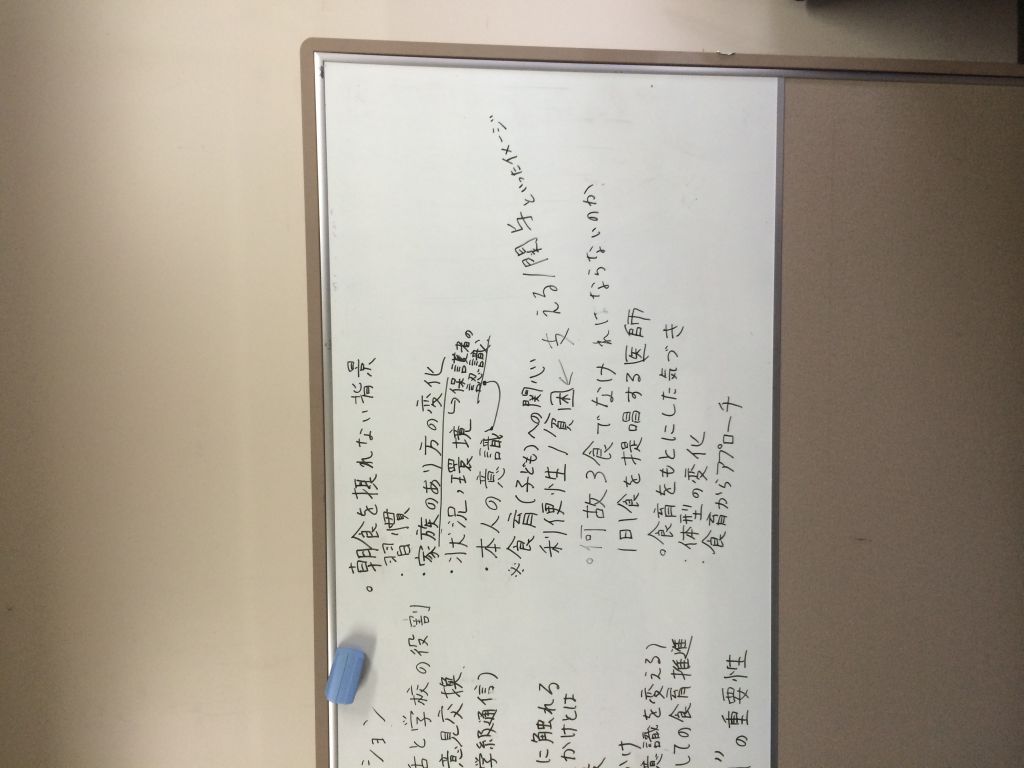 ション
と学校の役割
意見交換
学級通信)
に触れる
かけとは
かけ
意識を変える)
しての食育推進
”の重要性
。朝食を摂れない背景
・習慣
・家族のあり方の変化
・状況,環境 ↪保護者の
認識
・本人の意識
※食育(子ども)への関心
利便性/貧困 ← 支える/関与といったイメージ
。何故3食でなければならないのか
1日1食を提唱する医師
。食育をもとにした気づき
・体型の変化
・食育からアプローチ